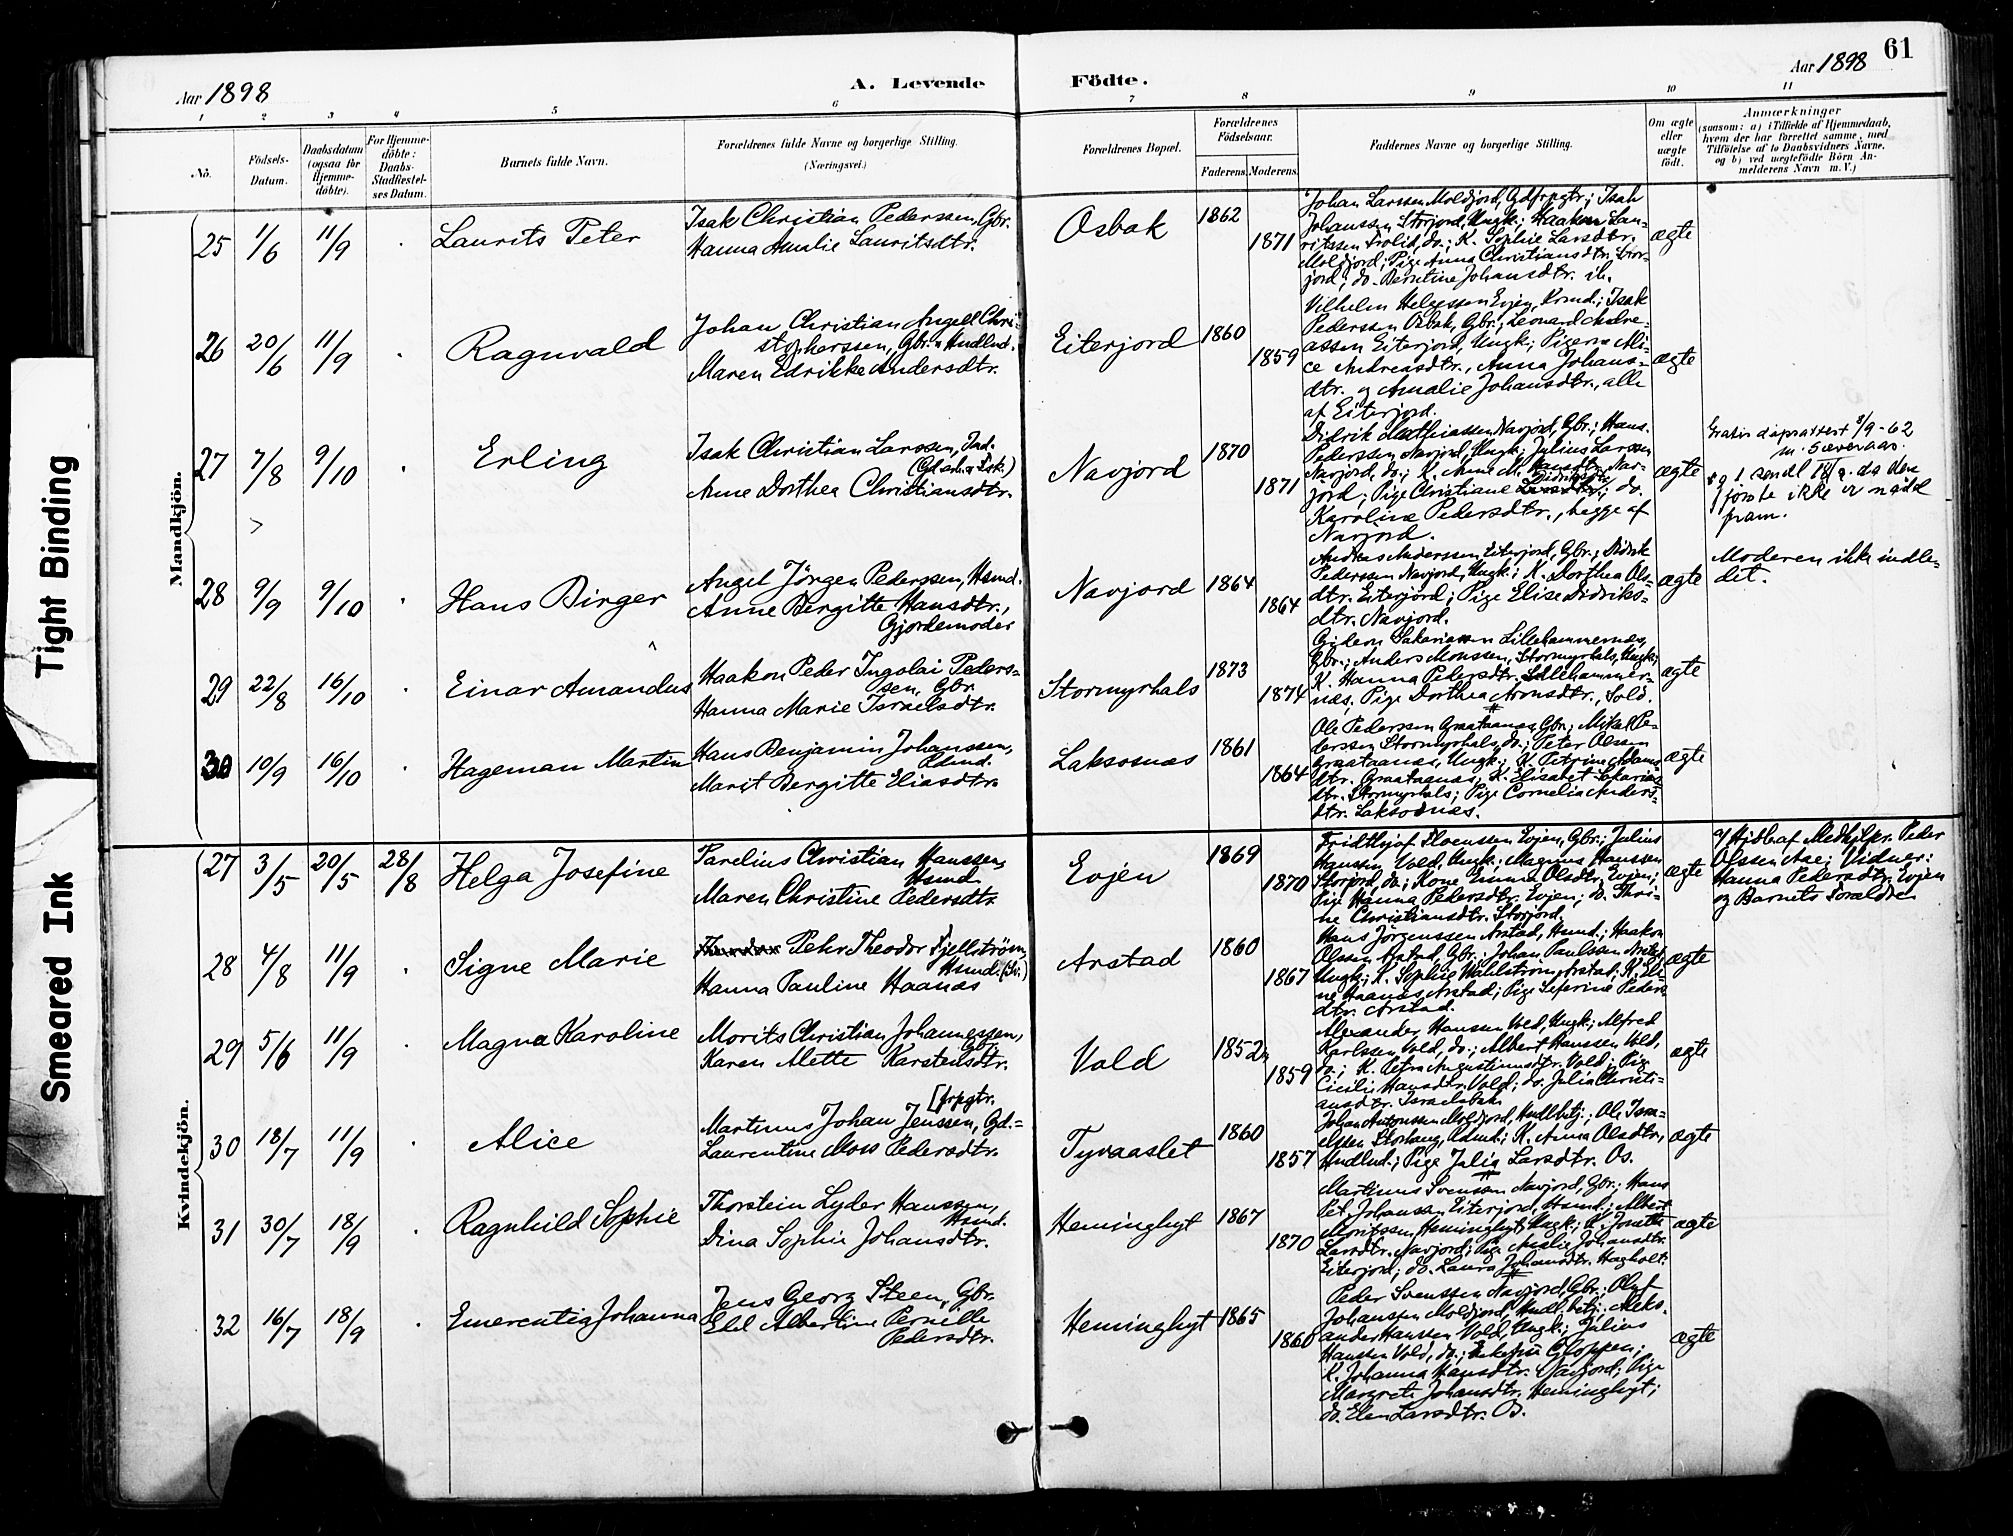 61
Aar 1898
A. Levende
Födte.
Aar 1898
1
2
3
4
5
6
7
8
9
10
11
No.
Födsels-
Datum.
Daabsdatum
(ogsaa for
Hjemme-
döbte).
For Hjemme-
döbte:
Daabs-
Stadfæstel-
ses Datum.
Barnets fulde Navn.
Forældrenes fulde Navne og borgerlige Stilling.
(Næringsvei.)
Forældrenes Bopæl.
Forældrenes
Födselsaar.
Faderens.
Moderens.
Faddernes Navne og borgerlige Stilling.
Om ægte
eller
uægte
födt.
Anmærkninger
(saasom: a) i Tilfælde af Hjemmedaab,
hvem der har forrettet samme, med
Tilföielse af to Daabsvidners Navne,
og b) ved uægtefödte Börn An-
melderens Navn m. V.)
Mandkjön.
25
1/6
11/9
Laurits Peter
Isak Christian Pederssen, Gbr.
Hanna Amalie Lauritsdtr.
Osbak
1862
1871
Johan Larssen Moldjord, Gdfrpgtr; Isak
Johanssen Storjord, Ungk.; Haakon Lau-
ritssen Trolid, do.; K. Sophie Larsdtr.
Moldjord; Pige Anna Christiansdtr. Stor-
jord; do. Berntine Johansdtr. ib.
ægte
26
20/6
11/9
Ragnvald
Johan Christian Angell Chri-
stopherssen, Gbr. & Hndlnd.
Maren Edrikke Andersdtr.
Eiterjord
1860
1859
Vilhelm Helgessen Evjen, Krmd.; Isak
Pederssen Osbak, Gbr.; Leonard Andre-
assen Eiterjord, Ungk.; Pigerne Ali-
ce Andreasdtr., Anna Johans-
dtr. og Amalie Johansdtr., alle
af Eiterjord.
ægte
27
7/8
9/10
Erling
Isak Christian Larssen, Ind.
Anne Dorthea Christiansdtr.
Navjord
1870
1871
Didrik Mathiassen Navjord, Gbr.; Hans
Pederssen Navjord, Ungk.; Julius Larssen
Navjord, do.; K. Anne M. Hansdtr. Nav-
jord; Pige Christiane Didriksdtr.; do.
Karoline Pedersdtr., begge af
Navjord.
ægte
Gratis dåpsattest 3/9-62
og 1 sendt 18/9. da den
förste ikke er nådd
fram.
28
9/9
9/10
Hans Birger
Angel Jörgen Pederssen, Hsmd.
Anne Bergitte Hansdtr.,
Gjordemoder
Navjord
1864
1864
Andreas Anderssen Eiterjord, Gbr.; Didrik
Pederssen Navjord, Ungk.; K. Dorthea Ols-
dtr. Eiterjord; Pige Elise Didriks-
dtr. Navjord.
ægte
Moderen ikke indle-
det.
29
22/8
16/10
Einar Amandus
Haakon Peder Ingolai Peders-
sen, Gbr.
Hanna Marie Israelsdtr.
Stormyrhals
1873
1874
Gideon Sakariassen Lillehammernæs,
Gbr.; Anders Monssen, Stormyrhals, Ungk.;
K. Hanna Pedersdtr. Lillehammer-
næs; Pige Dorthea Aronsdtr., Sold.
ægte
30
10/9
16/10
Hageman Martin
Hans Benjamin Johanssen,
Marit Bergitte Eliasdtr.
Laksosnæs
1861
1864
Ole Pederssen Graatanæs, Gbr.; Mikal Pe-
derssen Stormyrhals, do.; Peter Olssen
Graatanæs, Ungk.; K. Petrine Adams-
dtr. Graatanæs; K. Elisabet Sakarias-
dtr. Stormyrhals; Pige Cornelia Anders-
dtr. Laksosnæs.
ægte
Kvindekjön.
27
3/5
20/5
28/8
Helga Josefine
Parelius Christian Hanssen,
Hsmd.
Maren Christine Pedersdtr.
Evjen
1869
1870
Fridthjof Sloenssen Evjen, Gbr.; Julius
Hanssen Vold, Ungk.; Magnus Hanssen
Storjord, do.; Kone Emma Olsdtr. Evjen;
Pige Hanna Pedersdtr. Evjen; do. Thri-
ne Christiansdtr. Storjord.
ægte
a/ Hjdbt. af Medhjlpr. Peder
Olssen Aae; Vidner:
Hanna Pedersdtr. Evjen
og Barnets Forældre
28
4/8
11/9
Signe Marie
Pehr Theodor Fjellström,
Hsmd. (Sv.)
Hanna Pauline Haanæs
Arstad
1860
1867
Hans Jörgenssen Arstad, Hsmd.; Haakon
Olssen Arstad, Gbr.; Johan Paulssen Arstad,
Ungk.; K. Sophie Wahlström, Arstad; K. Eli-
ne Haanæs, Arstad; Pige Seferine Peders-
dtr. Arstad.
ægte
29
5/6
11/9
Magna Karoline
Morits Christian Johannessen,
Gbr.
Karen Alette Karstensdtr.
Vold
1852
1859
Alexander Hanssen Vold, Ungk.; Alfred
Karlssen Vold, do.; Albert Hanssen Vold,
do.; K. Petra Augustinusdtr. Vold; Pige
Cicilie Hansdtr. Vold; do. Julia Christi-
ansdtr. Israelsbak.
ægte
30
18/7
11/9
Alice
Martinus Johan Jenssen, Gd.-
[frpgtr.
Laurentine Moss Pedersdtr.
Tyvaaslet
1860
1857
Johan Antonssen Moldjord, Hndlbtj.; Ole Isra-
elssen Storhaug, Rdmd.; K. Anna Olsdtr,
Hndlnd.; Pige Julia Larsdtr. Os.
ægte
31
30/7
18/9
Ragnhild Sophie
Thorstein Lyder Hanssen,
Hsmd.
Dina Sophie Johansdtr.
Heminghyt
1867
1870
Martinus Svenssen Navjord, Gbr.; Hans
Pet. Johanssen Eiterjord, Hsmd.; Albert
Moritssen Heminghyt, Ungk.; K. Jonetta
Larsdtr. Navjord; Pige Amalie Johansdtr.
Eiterjord; do. Laura Johansdtr. Hagholt.
ægte
32
16/7
18/9
Emerentia Johanna
Jens Georg Steen, Gbr.
Edel Albertine Pernille
Pedersdtr.
Heminghyt
1865
1860
Peder Svenssen Navjord, Gbr.; Oluf
Johanssen Moldjord, Hndl.betj.; Aleks-
ander Hanssen Vold, Ungk.; Julius
Hanssen Vold, do.; Enkefru Gloppen;
K. Johanna Hansdtr. Navjord; Pige
Margrete Johansdtr. Heminghyt;
do. Elen Larsdtr. Os.
ægte
Tight Binding
Smeared Ink